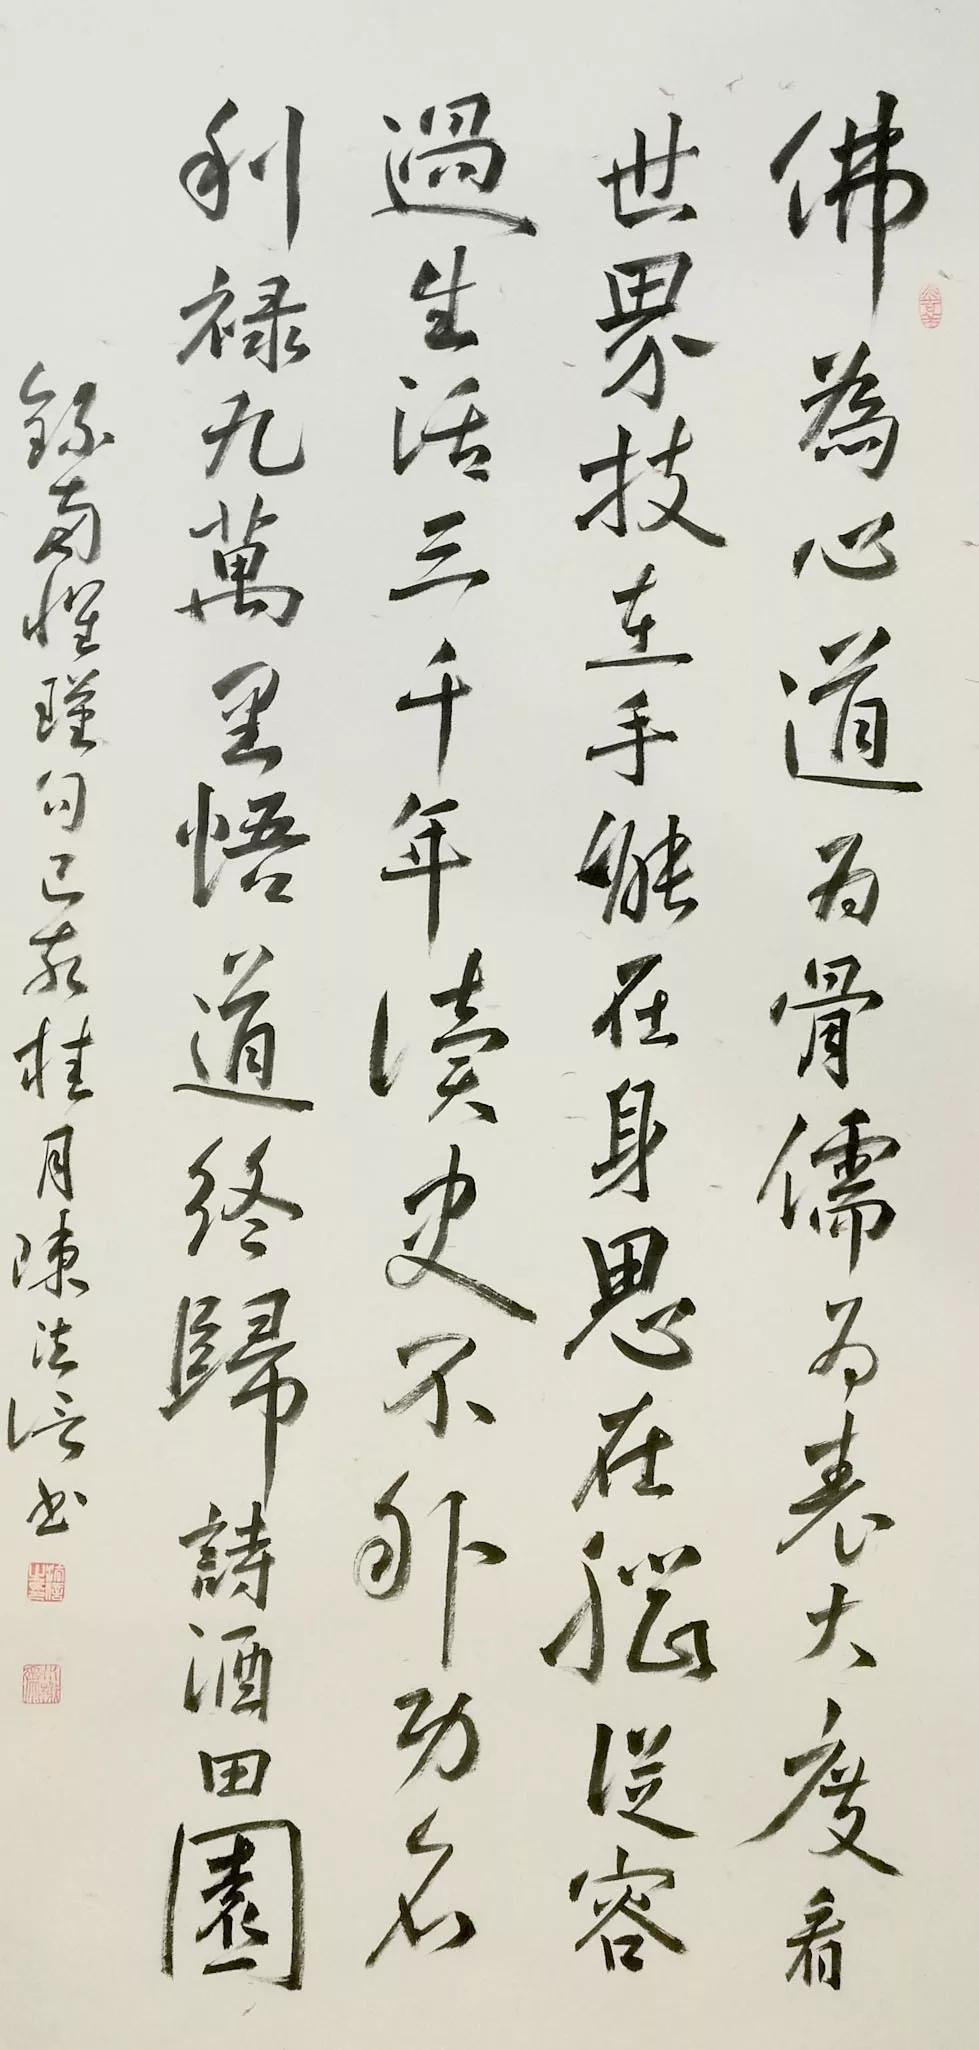 佛為心道為骨儒為表大度看
世界技在手能在身思在腦從容
過生活三千年讀史不外功名
利祿九萬里悟道終歸詩酒田園
錄南懷瑾句己亥桂月陳法信书